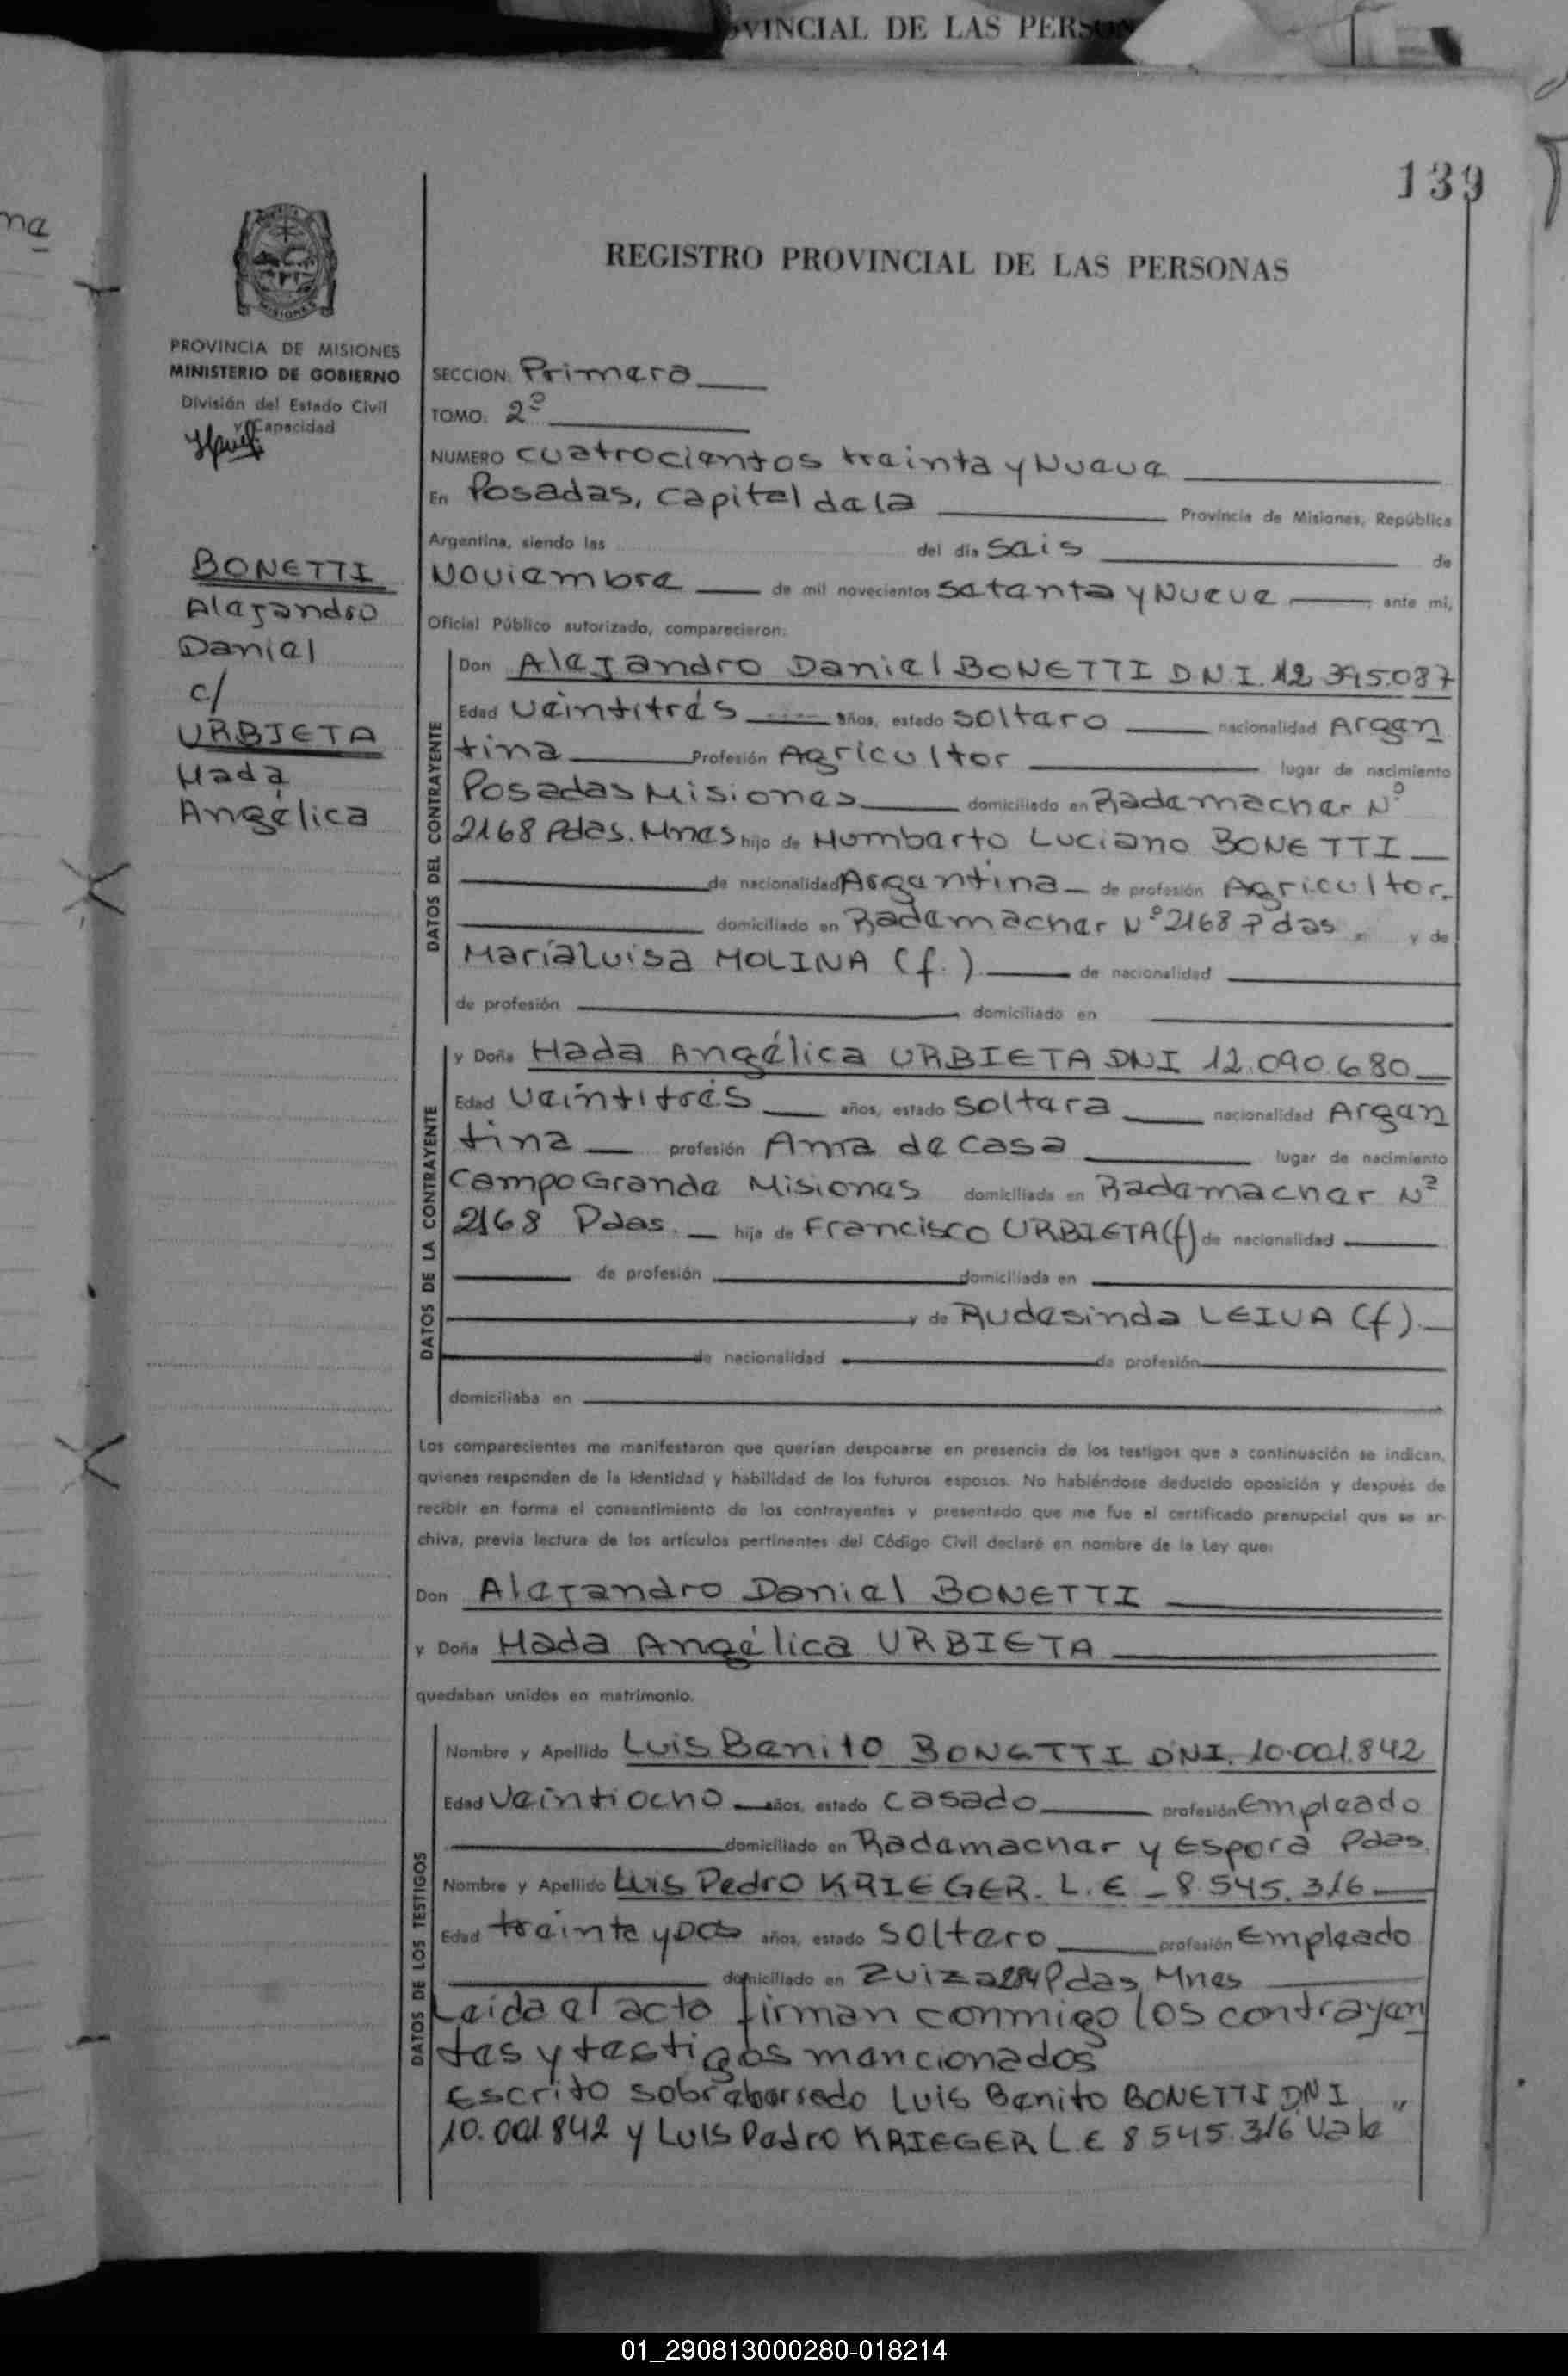 PROVINCIAL DE LAS PERSON
na
139
REGISTRO PROVINCIAL DE LAS PERSONAS
MISIONES
PROVINCIA DE MISIONES
MINISTERIO DE GOBIERNO
División del Estado Civil
y Capacidad
BONETTI
Alejandro
Daniel
c/
URBIETA
Hada
Angélica
SECCION: Primera
TOMO: 2º
NUMERO cuatrocientos treinta y Nueve
En Posadas, Capital de la Provincia de Misiones, República
Argentina, siendo las del día Seis de
Noviembre de mil novecientos setenta y Nueve ante mi,
Oficial Público autorizado, comparecieron:
DATOS DEL CONTRAYENTE
Don Alejandro Daniel BONETTI DNI. 12.395.087
Edad Veintitrés años, estado soltero nacionalidad Argen
tina Profesión Agricultor lugar de nacimiento
Posadas Misiones domiciliado en Rademacher Nº
2168 Pdas. Mnes hijo de Humberto Luciano BONETTI
de nacionalidad Argentina de profesión Agricultor.
domiciliado en Rademacher Nº 2168 Pdas. y de
María Luisa MOLINA (f.) de nacionalidad
de profesión domiciliado en
DATOS DE LA CONTRAYENTE
y Doña Hada Angélica URBIETA DNI 12.090.680
Edad Veintitrés años, estado soltera nacionalidad Argen
tina profesión Ama de casa lugar de nacimiento
Campo Grande Misiones domiciliada en Rademacher Nº
2168 Pdas. hija de Francisco URBIETA (f) de nacionalidad
de profesión domiciliada en
y de Rudesinda LEIVA (f).
de nacionalidad de profesión
domiciliaba en
Los comparecientes me manifestaron que querían desposarse en presencia de los testigos que a continuación se indican,
quienes responden de la identidad y habilidad de los futuros esposos. No habiéndose deducido oposición y después de
recibir en forma el consentimiento de los contrayentes y presentado que me fue el certificado prenupcial que se ar-
chiva, previa lectura de los artículos pertinentes del Código Civil declaré en nombre de la Ley que:
Don Alejandro Daniel BONETTI
y Doña Hada Angélica URBIETA
quedaban unidos en matrimonio.
DATOS DE LOS TESTIGOS
Nombre y Apellido Luis Benito BONETTI DNI. 10.001.842
Edad Veintiocho años, estado casado profesión Empleado
domiciliado en Rademacher y Espora Pdas.
Nombre y Apellido Luis Pedro KRIEGER. L.E - 8.545.316
Edad treinta y Dos años, estado soltero profesión Empleado
domiciliado en Zuiza 284 Pdas. Mnes
Leida el acto firman conmigo los contrayen
tes y testigos mencionados
Escrito sobreborrado Luis Benito BONETTI DNI
10.001.842 y Luis Pedro KRIEGER L.E 8.545.316 "Vale"
01_290813000280-018214